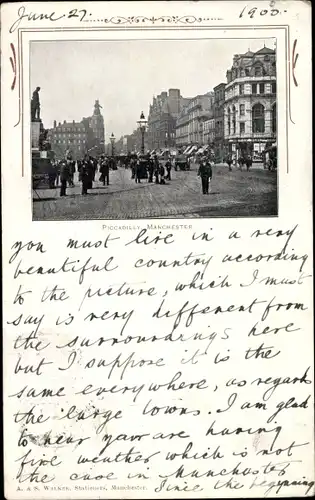 June 27. 1900.
PICCADILLY, MANCHESTER
you must live in a very
beautiful country according
to the picture, which I must
say is very different from
the surroundings here
but I suppose it is the
same everywhere, as regards
the large towns. I am glad
to hear you are having
fine weather which is not
the case in Manchester
A. & S. WALKER, Stationers, Manchester.
Since the beginning